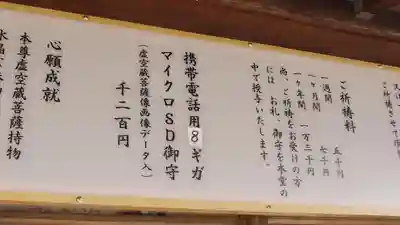 ご祈祷料
一週間 五千円
一ヶ月間 七千円
一ヶ年間 一万三千円
尚、ご祈祷をお受けの方
には、お札、御守を本堂の
中で授与いたします。
携帯電話用8ギガ
マイクロSD御守
(虚空蔵菩薩像画像データ入)
千二百円
心願成就
本尊虚空蔵菩薩持物